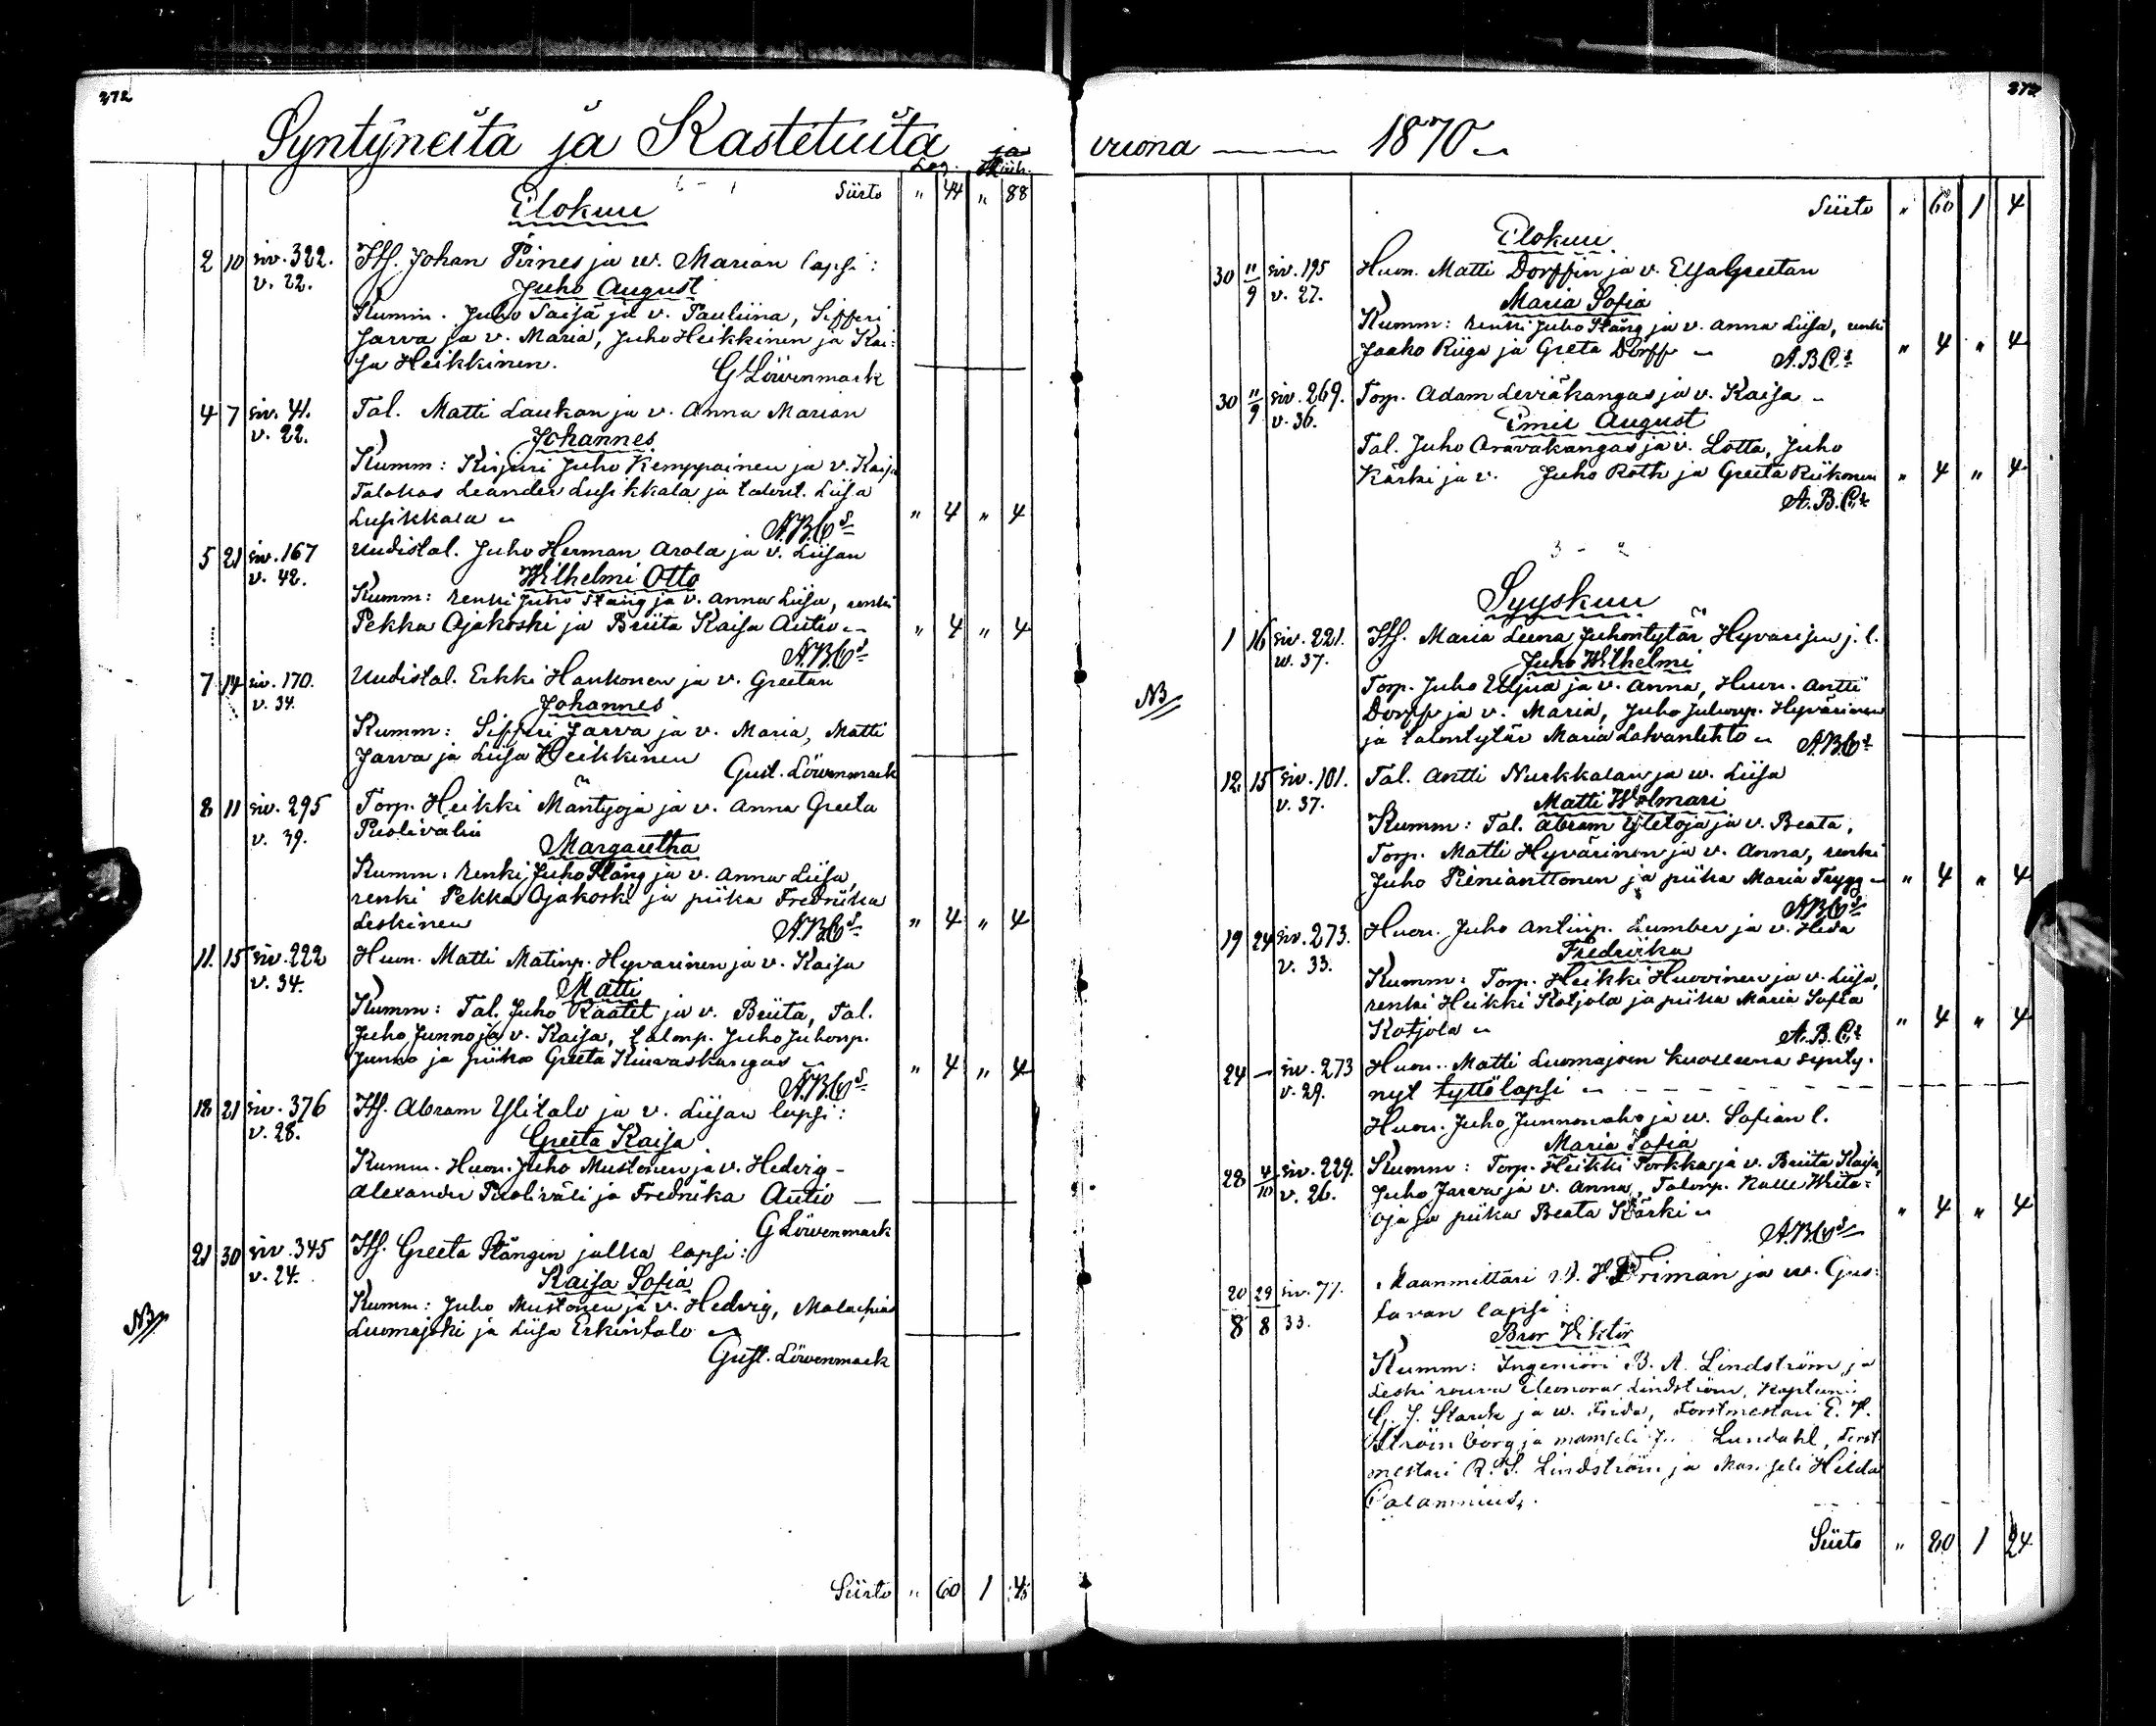 272
Syntyneitä ja Kastetuita ja
Siirto " 44 " 88
Elokuu
2 10 siv. 322. Its. Johan Pirnes ja w. Marian lapsi:
v. 22. Juho August
Kumm. Juho Saija ja v. Pauliina, Sifferi
Jarva ja v. Maria, Juho Heikkinen ja Kai-
sa Heikkinen. G Löwenmark
4 7 siv. 41. Tal. Matti Laukan ja v. Anna Marian
v. 22. Johannes
Kumm: Kirjuri Juho Kemppainen ja v. Kaisa
Talokas Leander Lusikkala ja talont. Liisa
Lusikkala " 4 " 4
A.B.C:s
5 21 siv. 167 Uudistal. Juho Herman Arola ja v. Liisan
v. 42. Wilhelmi Otto
Kumm: renki Juho Stång ja v. Anna Liisa, renki
Pekka Ojakoski ja Briita Kaisa Autio " 4 " 4
A.B.C:s
7 14 siv. 170. Uudistal. Erkki Hankonen ja v. Greetan
v. 34. Johannes
Kumm: Sifferi Jarva ja v. Maria, Matti
Jarva ja Liisa Heikkinen
Gust. Löwenmark
8 11 siv. 295 Torp. Heikki Mäntyoja ja v. Anna Greeta
v. 39. Puoliväli
Margaretha
Kumm: renki Juho Stång ja v. Anna Liisa,
renki Pekka Ojakoski ja piika Fredriika
Leskinen A.B.C:s " 4 " 4
11. 15 siv. 222 Huon. Matti Matinp. Hyvarinen ja v. Kaisa
v. 34. Matti
Kumm: Tal. Juho Räätet ja v. Briita, Tal.
Juho Junno ja v. Kaisa, talonp. Juho Juhonp.
Junno ja piika Greeta Kiuvaskangas " 4 " 4
A.B.C:s
18 21 siv. 376 Its. Abram Ylitalo ja v. Liisan lapsi:
v. 28. Greeta Kaisa
Kumm. Huon. Juho Mustonen ja v. Hedvig -
Alexander Puoliväli ja Fredrika Autio
G Löwenmark
21 30 siv. 345 Its. Greeta Stångin julka lapsi:
v. 24. Kaisa Sofia
Kumm: Juho Mustonen ja v. Hedvig, Malachias
NB Luomajoki ja Liisa Erkintalo
Gust. Löwenmark
Siirto " 60 1 4
272
vuona 1870
Siirto " 60 1 4
Elokuu
30 11/9 siv. 195 Huon. Matti Dorffin ja v. Elsa Greetan
v. 27. Maria Sofia
Kumm: renki Juho Stång ja v. Anna Liisa, renki
Jaako Riiga ja Greta Dorff A.B.C:s " 4 " 4
30 11/9 siv. 269. Torp. Adam Leviäkangas ja v. Kaisa
v. 36. Emil August
Tal. Juho Aravakangas ja v. Lotta, Juho
Kärki ja v. Juho Roth ja Greeta Riikonen " 4 " 4
A.B.C:s
Syyskuu
1 16 siv. 221. Its. Maria Leena Juhontytär Hyvarisen j. l.
w. 37. Juho Wilhelmi
NB Torp. Juho Uljua ja v. Anna, Huon. Antti
Dorff ja v. Maria, Juho Juhonp. Hyvärinen
ja talontytär Maria Latvanlehto A.B.C:s
12. 15 siv. 101. Tal. Antti Nurkkalan ja w. Liisa
v. 37. Matti Wolmari
Kumm: Tal. Abram Yletoja ja v. Beata,
Torp. Matti Hyvärinen ja v. Anna, renki
Juho Pienianttonen ja piika Maria Trygg " 4 " 4
A.B.C:s
19 24 siv. 273. Huon. Juho Antinp. Lumber ja v. Heda
v. 33. Fredrika
Kumm: Torp. Heikki Huovinen ja v. Liisa,
renki Heikki Kotjola ja piika Maria Sofia
Kotjola A.B.C:s " 4 " 4
24 — siv. 273 Huon. Matti Luomajoen kuolleena synty-
v. 29. nyt tyttölapsi
Huon. Juho Junnonaho ja w. Sofian l.
Maria Sofia
28 4/10 siv. 229. Kumm: Torp. Heikki Torkka ja v. Briita Kaisa,
v. 26. Juho Jarva ja v. Anna, Talonp. Kalle Wiita-
oja ja piika Beata Kärki " 4 " 4
A.B.C:s
20/8 29/8 siv. 77. Maanmittari H. Friman ja w. Gus-
33. tavan lapsi:
Bror Viktor
Kumm: Ingeniöri B. A. Lindström ja
Leski rouva Eleonora Lindström, Kapteni
G. J. Starck ja w. Frida, Forstmestari E. V.
Strömborg ja mamseli Lundahl, Forst-
mestari R. S. Lindström ja Mamseli Hilda
Calamnius.
Siirto " 80 1 24